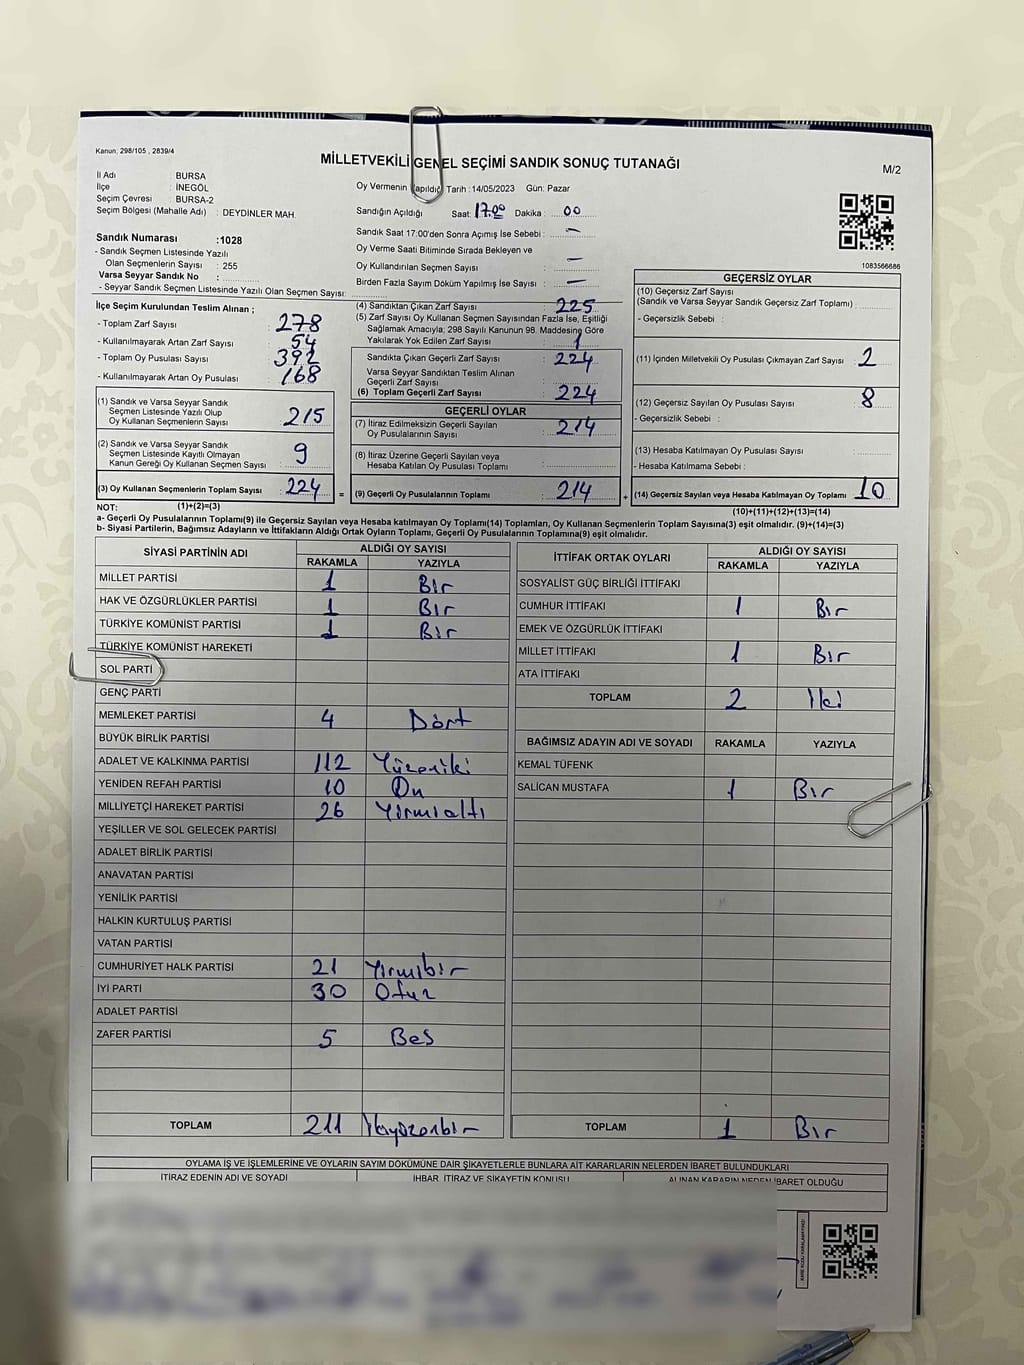 Kanun; 298/105 , 2839/4
MİLLETVEKİLİ GENEL SEÇİMİ SANDIK SONUÇ TUTANAĞI
M/2
İl Adı : BURSA
İlçe : İNEGÖL
Seçim Çevresi : BURSA-2
Seçim Bölgesi (Mahalle Adı) : DEYDİNLER MAH.
Oy Vermenin Yapıldığı Tarih :14/05/2023 Gün: Pazar
Sandığın Açıldığı Saat: 17.00 Dakika : 00
Sandık Saat 17:00'den Sonra Açımış İse Sebebi : —
Oy Verme Saati Bitiminde Sırada Bekleyen ve
Oy Kullandırılan Seçmen Sayısı : —
Birden Fazla Sayım Döküm Yapılmış İse Sayısı : —
Sandık Numarası :1028
- Sandık Seçmen Listesinde Yazılı
Olan Seçmenlerin Sayısı : 255
Varsa Seyyar Sandık No :
- Seyyar Sandık Seçmen Listesinde Yazılı Olan Seçmen Sayısı:
1083566686
İlçe Seçim Kurulundan Teslim Alınan ;
- Toplam Zarf Sayısı : 278
- Kullanılmayarak Artan Zarf Sayısı : 54
- Toplam Oy Pusulası Sayısı : 392
- Kullanılmayarak Artan Oy Pusulası : 168
(1) Sandık ve Varsa Seyyar Sandık
Seçmen Listesinde Yazılı Olup
Oy Kullanan Seçmenlerin Sayısı : 215
(2) Sandık ve Varsa Seyyar Sandık
Seçmen Listesinde Kayıtlı Olmayan
Kanun Gereği Oy Kullanan Seçmen Sayısı : 9
(3) Oy Kullanan Seçmenlerin Toplam Sayısı : 224 =
(4) Sandıktan Çıkan Zarf Sayısı : 225
(5) Zarf Sayısı Oy Kullanan Seçmen Sayısından Fazla İse, Eşitliği
Sağlamak Amacıyla; 298 Sayılı Kanunun 98. Maddesine Göre
Yakılarak Yok Edilen Zarf Sayısı : 1
Sandıkta Çıkan Geçerli Zarf Sayısı : 224
Varsa Seyyar Sandıktan Teslim Alınan
Geçerli Zarf Sayısı :
(6) Toplam Geçerli Zarf Sayısı : 224
GEÇERLİ OYLAR
(7) İtiraz Edilmeksizin Geçerli Sayılan
Oy Pusulalarının Sayısı : 214
(8) İtiraz Üzerine Geçerli Sayılan veya
Hesaba Katılan Oy Pusulası Toplamı :
(9) Geçerli Oy Pusulalarının Toplamı : 214 +
GEÇERSİZ OYLAR
(10) Geçersiz Zarf Sayısı
(Sandık ve Varsa Seyyar Sandık Geçersiz Zarf Toplamı) :
- Geçersizlik Sebebi :
(11) İçinden Milletvekili Oy Pusulası Çıkmayan Zarf Sayısı : 2
(12) Geçersiz Sayılan Oy Pusulası Sayısı : 8
- Geçersizlik Sebebi :
(13) Hesaba Katılmayan Oy Pusulası Sayısı :
- Hesaba Katılmama Sebebi :
(14) Geçersiz Sayılan veya Hesaba Katılmayan Oy Toplamı : 10
NOT: (1)+(2)=(3)
(10)+(11)+(12)+(13)=(14)
a- Geçerli Oy Pusulalarının Toplamı(9) ile Geçersiz Sayılan veya Hesaba katılmayan Oy Toplamı(14) Toplamları, Oy Kullanan Seçmenlerin Toplam Sayısına(3) eşit olmalıdır. (9)+(14)=(3)
b- Siyasi Partilerin, Bağımsız Adayların ve İttifakların Aldığı Ortak Oyların Toplamı, Geçerli Oy Pusulalarının Toplamına(9) eşit olmalıdır.
SİYASİ PARTİNİN ADI ALDIĞI OY SAYISI
RAKAMLA YAZIYLA
MİLLET PARTİSİ 1 Bir
HAK VE ÖZGÜRLÜKLER PARTİSİ 1 Bir
TÜRKİYE KOMÜNİST PARTİSİ 1 Bir
TÜRKİYE KOMÜNİST HAREKETİ
SOL PARTİ
GENÇ PARTİ
MEMLEKET PARTİSİ 4 Dört
BÜYÜK BİRLİK PARTİSİ
ADALET VE KALKINMA PARTİSİ 112 Yüzoniki
YENİDEN REFAH PARTİSİ 10 On
MİLLİYETÇİ HAREKET PARTİSİ 26 Yirmialtı
YEŞİLLER VE SOL GELECEK PARTİSİ
ADALET BİRLİK PARTİSİ
ANAVATAN PARTİSİ
YENİLİK PARTİSİ
HALKIN KURTULUŞ PARTİSİ
VATAN PARTİSİ
CUMHURİYET HALK PARTİSİ 21 Yirmibir
İYİ PARTİ 30 Otuz
ADALET PARTİSİ
ZAFER PARTİSİ 5 Bes
TOPLAM 211 İkiyüzonbir
İTTİFAK ORTAK OYLARI ALDIĞI OY SAYISI
RAKAMLA YAZIYLA
SOSYALİST GÜÇ BİRLİĞİ İTTİFAKI
CUMHUR İTTİFAKI 1 Bir
EMEK VE ÖZGÜRLÜK İTTİFAKI
MİLLET İTTİFAKI 1 Bir
ATA İTTİFAKI
TOPLAM 2 İki
BAĞIMSIZ ADAYIN ADI VE SOYADI RAKAMLA YAZIYLA
KEMAL TÜFENK
SALİCAN MUSTAFA 1 Bir
TOPLAM 1 Bir
OYLAMA İŞ VE İŞLEMLERİNE VE OYLARIN SAYIM DÖKÜMÜNE DAİR ŞİKAYETLERLE BUNLARA AİT KARARLARIN NELERDEN İBARET BULUNDUKLARI
İTİRAZ EDENİN ADI VE SOYADI İHBAR, İTİRAZ VE ŞİKAYETİN KONUSU ALINAN KARARIN NEDEN İBARET OLDUĞU